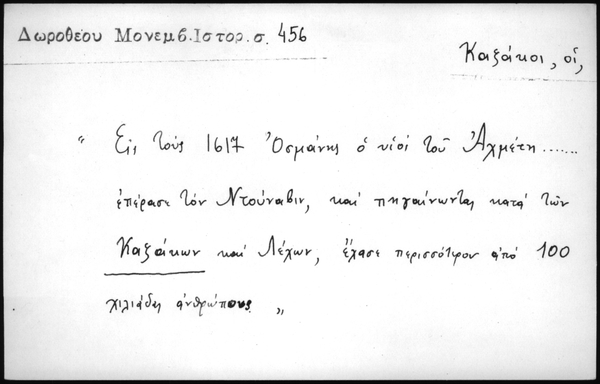 Δωροθέου Μονεμβ. Ιστορ. σ. 456
Καζάκοι, οἱ,
" Εἰς τούς 1617 Ὀσμάνης ὁ υἱός τοῦ Ἀχμέτη......
ἐπέρασε τόν Ντούναβιν, καί πηγαίνωντας κατά τῶν
Καζάκων καί Λέχων, ἔχασε περισσότερον ἀπό 100
χιλιάδες ἀνθρώπους "